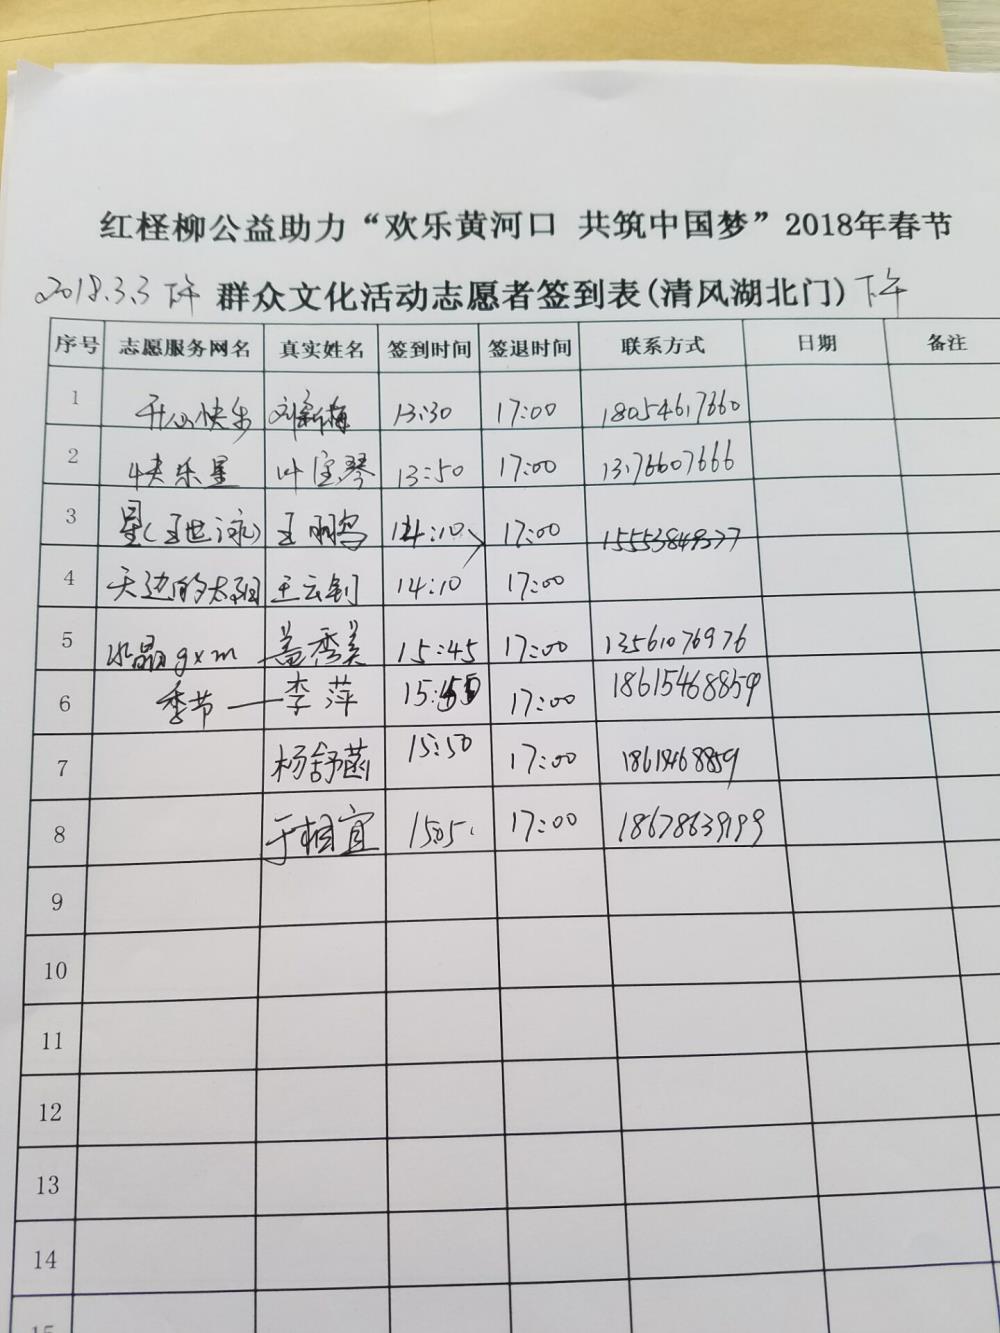 红柽柳公益助力“欢乐黄河口 共筑中国梦”2018年春节
2018.3.3 下午 群众文化活动志愿者签到表(清风湖北门) 下午
序号 志愿服务网名 真实姓名 签到时间 签退时间 联系方式 日期 备注
1 开心快乐 刘新梅 13:30 17:00 18054617660
2 快乐星 叶宝琴 13:50 17:00 13176607666
3 星(王世泳) 王鹏 14:10 17:00 15553849377
4 天边的太阳 王云钊 14:10 17:00
5 水晶gxm 盖秀美 15:45 17:00 13561076976
6 季节 — 李萍 15: 17:00 18615468859
7 杨舒菡 15:50 17:00
8 于相宜 15:05. 17:00 18678639199
9
10
11
12
13
14
15